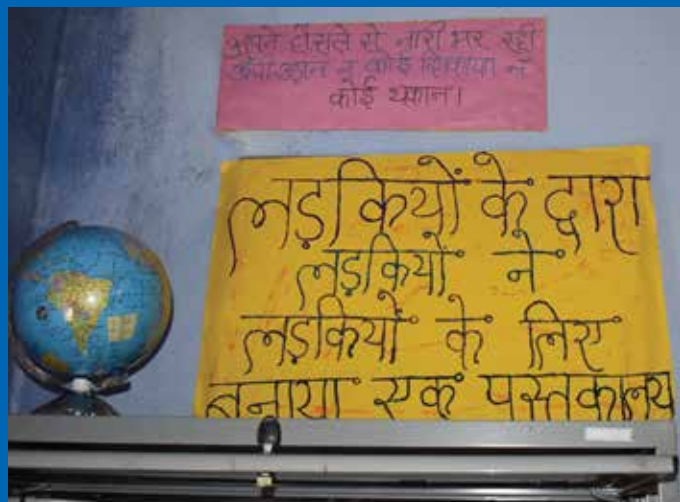 अपने हौसले से नारी भर रही
ऊँची उड़ान न कोई शिकायत न
कोई थकान।
लड़कियों के द्वारा
लड़कियों ने
लड़कियों के लिए
बनाया एक पुस्तकालय